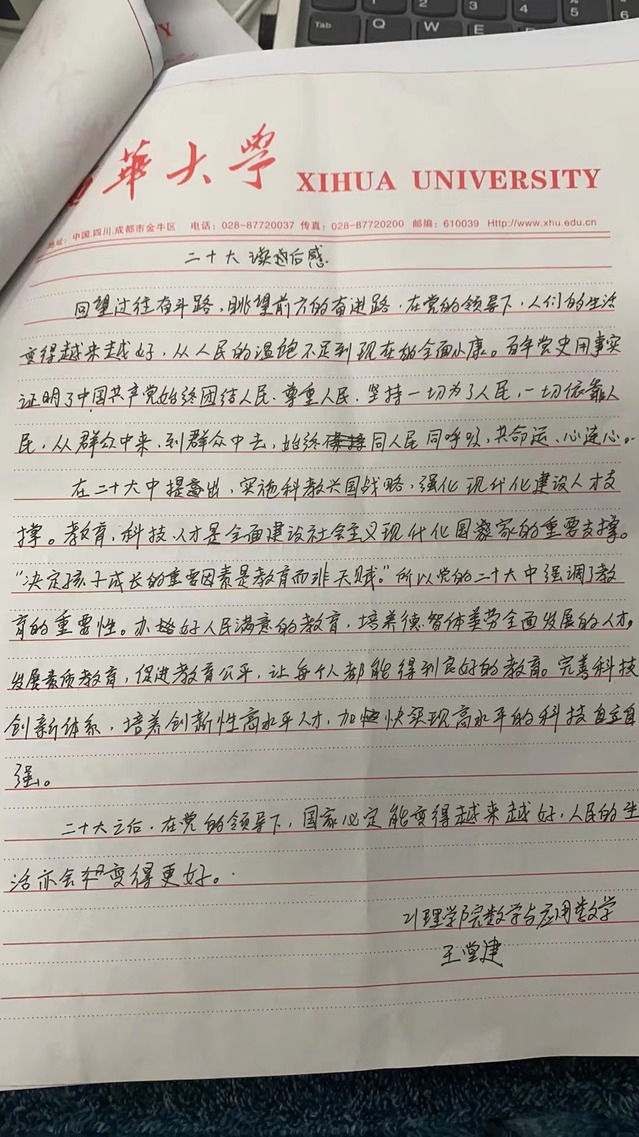 華大学 XIHUA UNIVERSITY
地址:中国.四川.成都市金牛区 电话:028-87720037 传真:028-87720200 邮编:610039 Http://www.xhu.edu.cn
二十大读后感
回望过往奋斗路,眺望前方的奋进路,在党的领导下,人们的生活
变得越来越好,从人民的温饱不足到现在的全面小康。百年党史用事实
证明了中国共产党始终团结人民、尊重人民,坚持一切为了人民,一切依靠人
民,从群众中来,到群众中去,始终同人民同呼吸、共命运、心连心。
在二十大中提出,实施科教兴国战略,强化现代化建设人才支
撑。教育、科技、人才是全面建设社会主义现代化国家的重要支撑。
“决定孩子成长的重要因素是教育而非天赋。”所以党的二十大中强调了教
育的重要性。办好人民满意的教育,培养德智体美劳全面发展的人才。
发展素质教育,促进教育公平,让每个人都能得到良好的教育。完善科技
创新体系,培养创新性高水平人才,加快实现高水平的科技自立自
强。
二十大之后,在党的领导下,国家必定能变得越来越好,人民的生
活亦会变得更好。
理学院数学与应用数学
王堂建
Tab